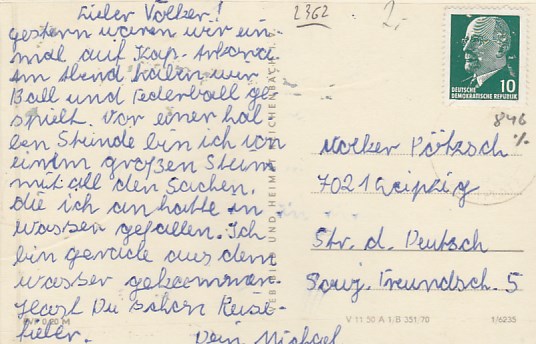 Lieber Volker!
gestern waren wir ein-
mal auf Kap. Arkona
Am Abend haben wir
Ball und Federball ge-
spielt. Vor einer hal-
ben Stunde bin ich von
einem großen Stein
mit all den Sachen,
die ich an hatte in
wasser gefallen. Ich
bin gerade aus dem
wasser gekommen.
Hast Du schon Reise-
fieber.
Dein Michael
2362
2,-
DEUTSCHE
DEMOKRATISCHE REPUBLIK
10
846
%
Volker Pötzsch
7021 Leipzig
Str. d. Deutsch
Sowj. Freundsch. 5
BILD UND HEIMAT REICHENBACH
0,20 M
V 11 50 A 1/B 351/70
1/6235